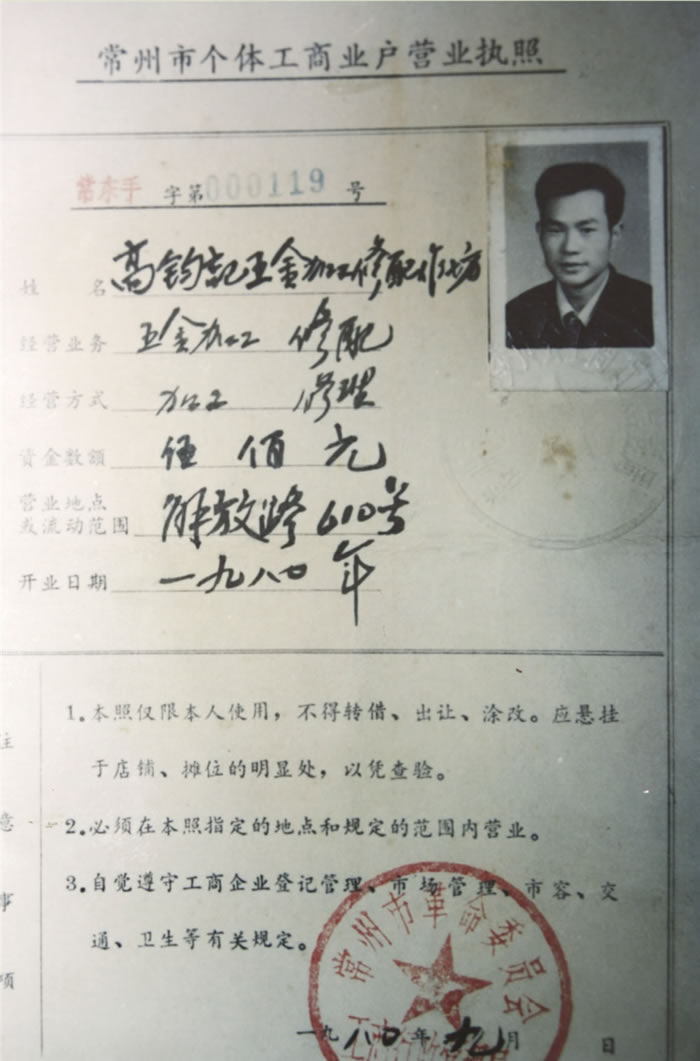 常州市个体工商业户营业执照
常东手 字第000119 号
姓 名 高钧记五金加工修配作坊
经营业务 五金加工 修配
经营方式 加工 修理
资金数额 伍佰元
营业地点
或流动范围 解放路610号
开业日期 一九八〇年
注意事项
1.本照仅限本人使用，不得转借、出让、涂改。应悬挂
于店铺、摊位的明显处，以凭查验。
2.必须在本照指定的地点和规定的范围内营业。
3.自觉遵守工商企业登记管理、市场管理、市容、交
通、卫生等有关规定。
常州市革命委员会
一九八〇年九月 日